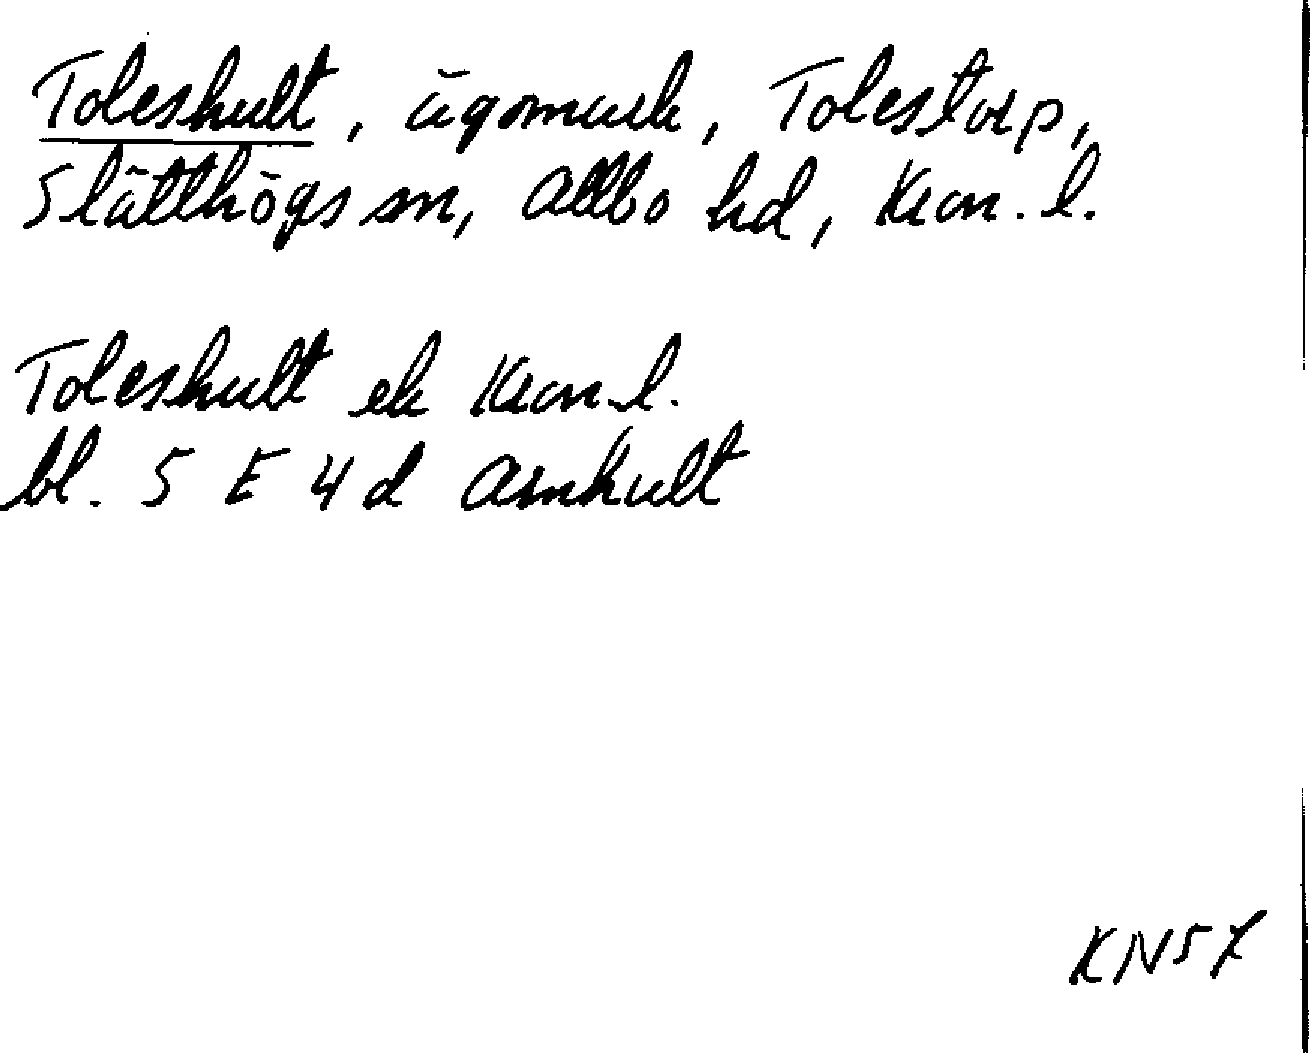 Toleshult, ägomark, Tolestorp,
Slätthögs sn, Allbo hd, Kron. l.
Toleshult ek Kron. l.
bl. 5 E 4 d Asnhult
KN57